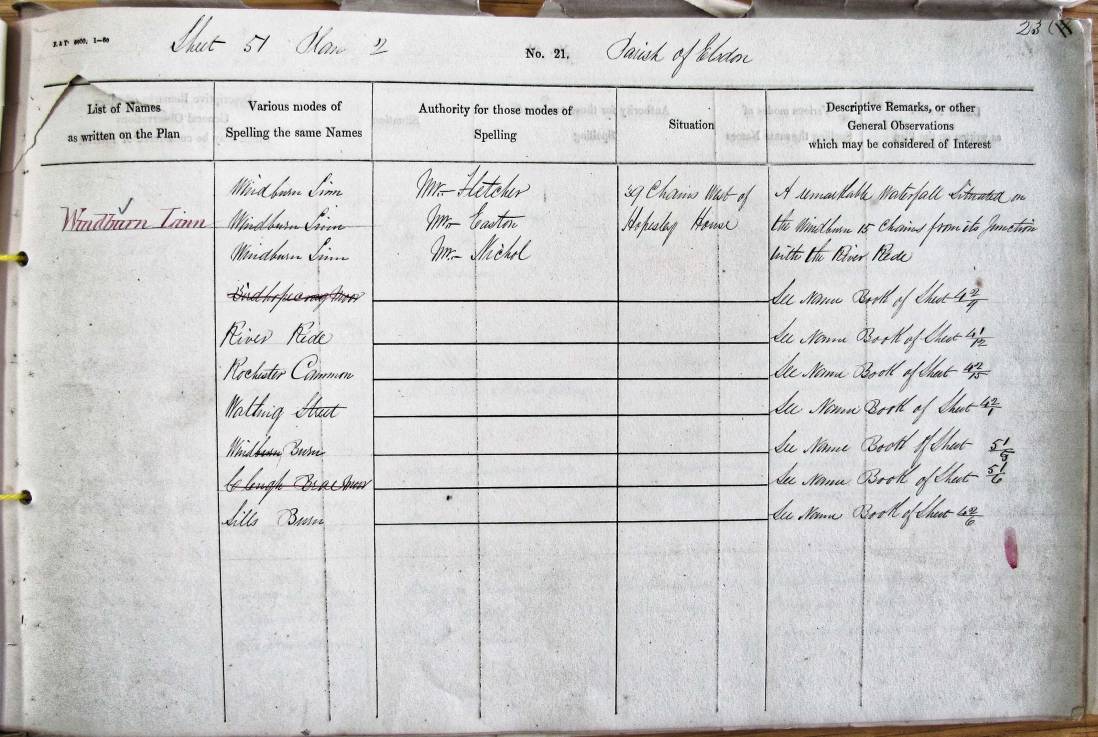 23
Sheet 51 Plan 2 No. 21. Parish of Elsdon
List of Names
as written on the Plan
Various modes of
Spelling the same Names
Authority for those modes of
Spelling
Situation
Descriptive Remarks, or other
General Observations
which may be considered of Interest
Windburn Linn
Windburn Linn Mr. Fletcher 39 Chains West of A remarkable Waterfall Situated on
Windburn Linn Mr. Easton Hopesley House the Windburn 15 Chains from its Junction
Windburn Linn Mr. Nichol with the River Rede
Birdhopecraig Moor See Name Book of Sheet 42/9
River Rede See Name Book of Sheet 41/12
Rochester Common See Name Book of Sheet 42/15
Watling Street See Name Book of Sheet 42/1
Windburn Burn See Name Book of Sheet 51/8
Cleugh Brae Moor See Name Book of Sheet 51/6
Sills Burn See Name Book of Sheet 42/6